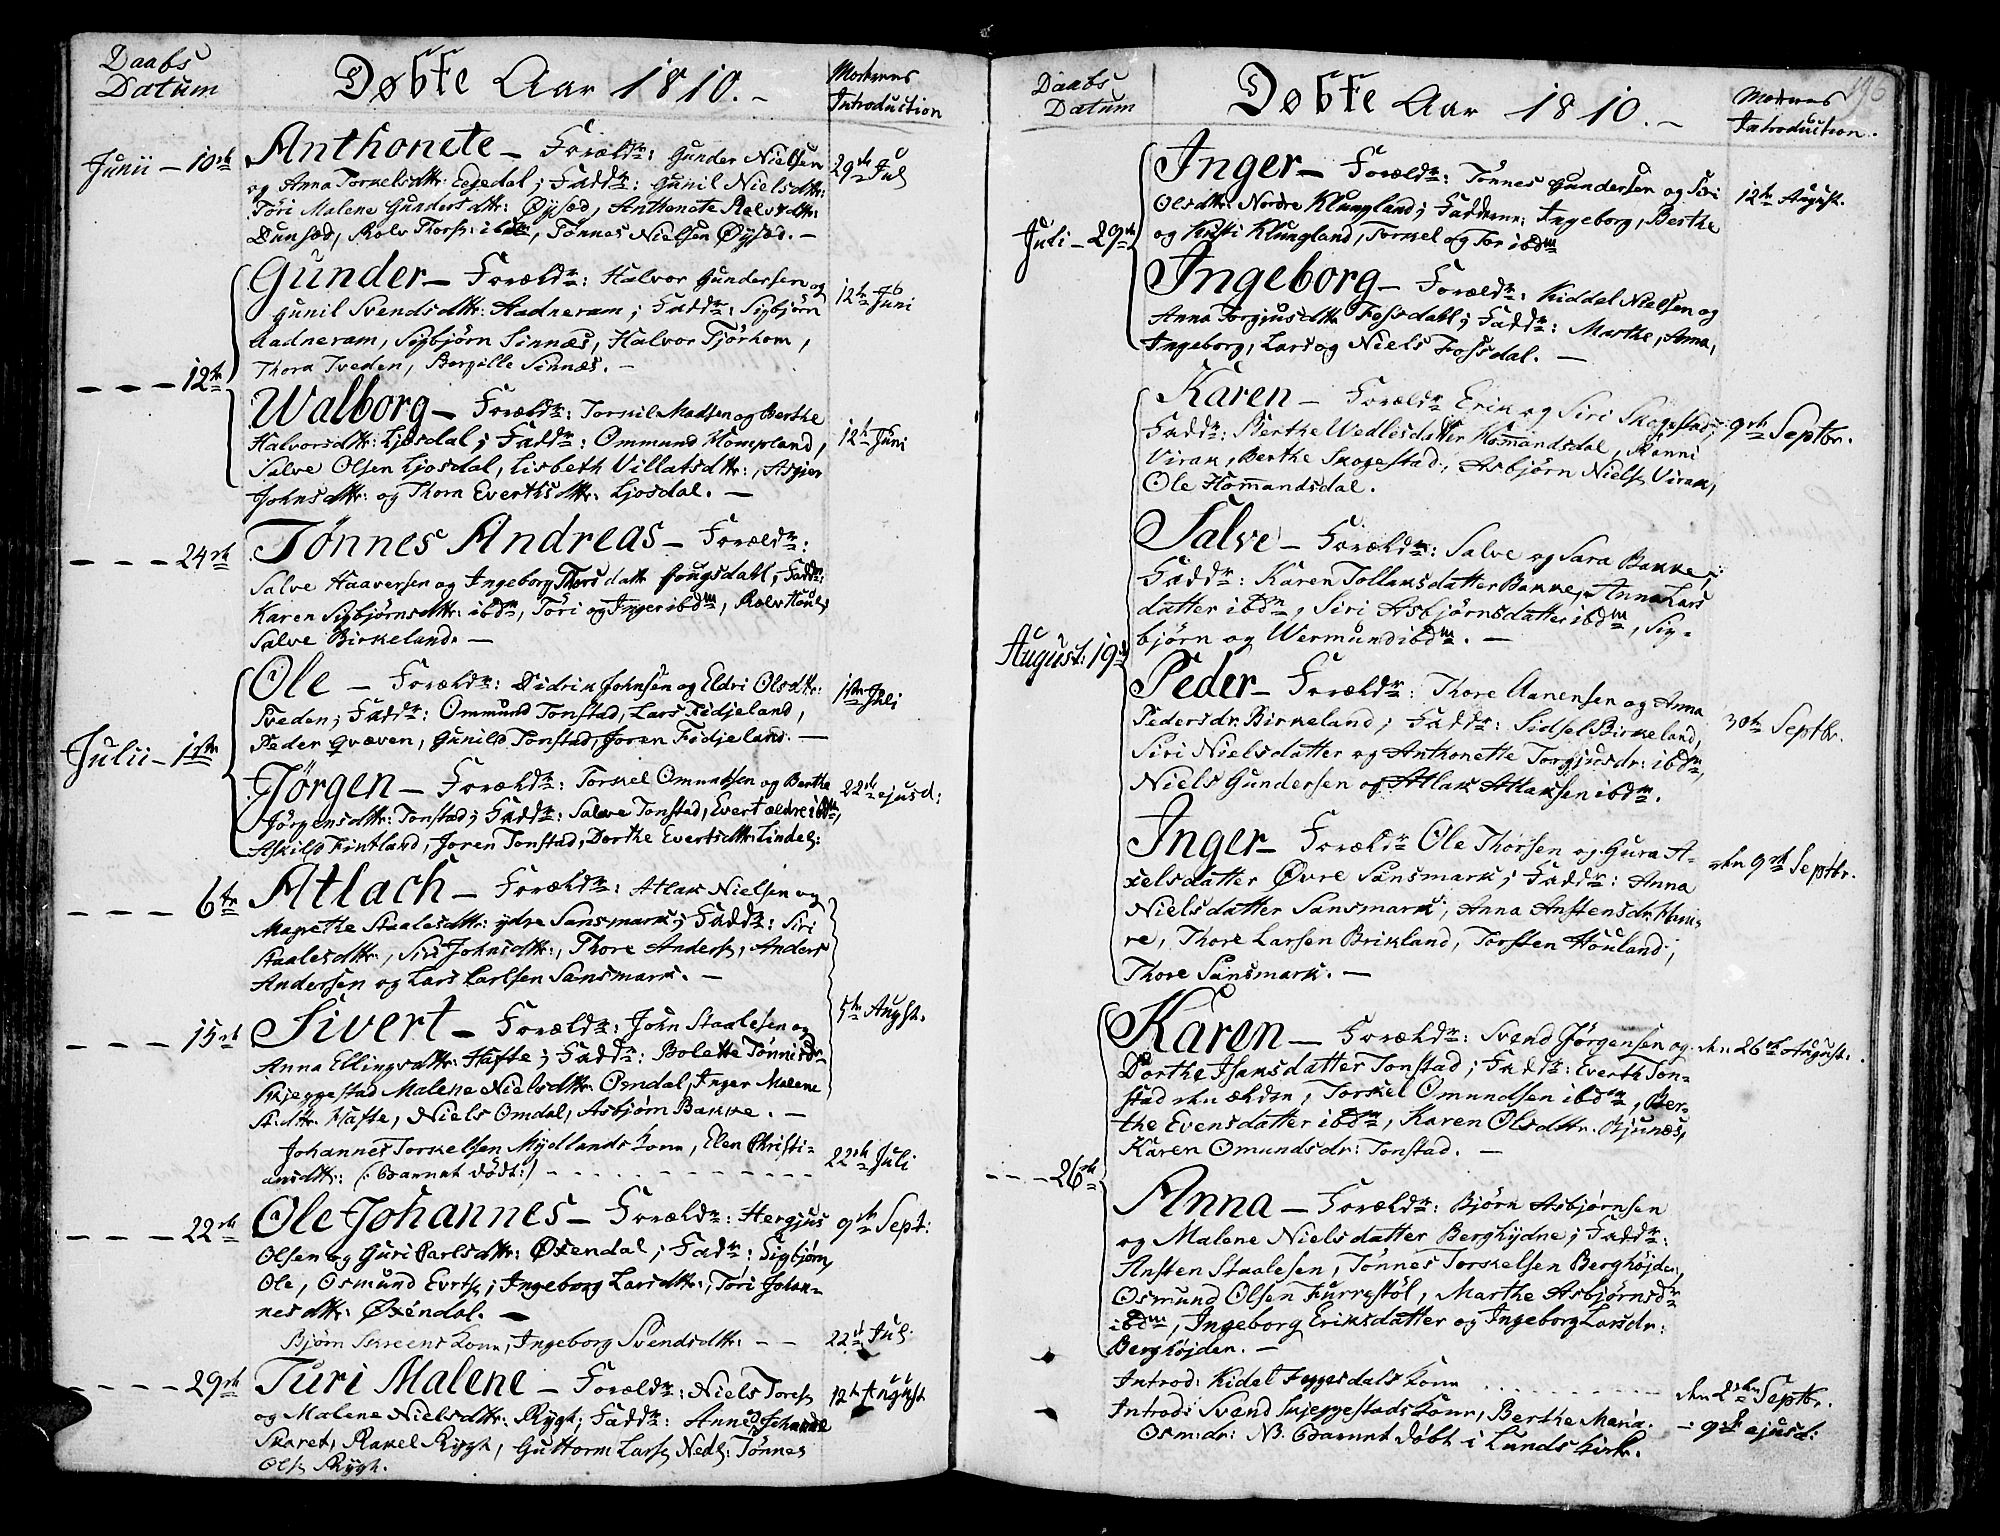 Daabs
Datum
Døbte Aar 1810.-
Modernes
Introduction
Junii - 10de
Anthonete - Forældr: Gunder Nielsen
og Anna Torkelsdttr: Egedal; Faddr: Gunil Nielsdttr:
Tóri Malene Gundersdttr: Øysæd, Anthonete Rolvsdttr:
Dunsæd, Rolv Thors: ibdm, Tønnes Nielsen Øysæd. -
29de Jul
--- 12te
Gunder - Forældr: Halvor Gundersen og
Gunil Svendsdttr: Aadneram; Faddr: Sigbjörn
Aadneram, Sigbjørn Sinnæs, Halvor Tjórhom,
Thora Tveden, Bergille Sinnæs. -
12te Juni
Walborg - Forældr: Torkil Madsen og Berthe
Halvorsdttr: Ljosdal; Faddr: Ommund Kompland,
Salve Olsen Ljosdal, Lisbeth Villatsdttr:, Asgjer
Johnsdttr: og Thora Everthsdttr: Ljosdal. -
12te Juni
--- 24de
Tønnes Andreas - Forældr:
Salve Haaversen og Ingeborg Thorsdatt: Jougsdahl, Faddr:
Karen Sigbjørnsdttr: ibdm, Tóri og Inger ibdm, Rolv Houls
Salve Birkeland. -
Julii - 1ste
Ole - Forældr: Didrik Johnsen og Eldri Olsdttr:
Tveden; Faddr: Ommund Tonstad, Lars Fidjeland,
Peder Qvæven, Gunild Tonstad, Joren Fidjeland. -
1ste Juli
Jørgen - Forældr: Torkel Omundsen og Berthe
Jørgensdttr: Tonstad; Faddr: Salve Tonstad, Evert ældre ibdm,
Askild Fintland, Joren Tonstad, Dorthe Evertsdttr: Lindel:
22de ejusd:
--- 6te
Atlach - Forældr: Atlak Nielsen og
Magrethe Staalesdttr: ydre Sansmark; Faddr: Siri
Staalesdttr:, Siri Johnsdttr:, Thore Anders:, Anders
Andersen og Lars Carlsen Sansmark. -
5te August.
--- 15de
Sivert - Forældr: John Staalesen og
Anna Ellingsdttr: Hafte; Faddr: Bolette Tönnisdr
Skjeggestad Malene Nielsdttr: Omdal, Inger Malene
S:dttr: Hafte, Niels Omdal, Asbjørn Bakke. -
Johannes Torkelsen Mydlands kone, Elen Christi-
ansdttr: (: Barnet dödt :) - - -
22de Juli
--- 22de
Ole Johannes - Forældr: Hergjus
Olsen og Guri Carlsdttr: Øxendal; Fadr: Sigbjørn,
Ole, Osmund Evrts:, Ingeborg Larsdttr:, Tóri Johan-
nesdttr: Øxendal. -
9de Sept:
Bjørn Skreens kone, Ingeborg Svendsdttr: - -
22d Jul:
--- 29de
Turi Malene - Forældr: Niels Tores:
og Malene Nielsdttr: Rygh; Faddr: Anne og Johanne
Skaret, Rakel Rygh, Guttorm Lars: Nedl: Tönnes
Ols: Rygh.
12te August
196
Daabs
Datum
Døbte Aar 1810.-
Modernes
Introduction.
Juli - 29de
Inger - Forældr: Tónnes Gundersen og Tóri
Olsdttr: Nordre Klungland; Fadderne: Ingeborg, Berthe
og Kristi Klungland, Torkel og Tor ibdm
12te August.
Ingeborg - Forældr: Kiddel Nielsen og
Anna Torgjusdttr: Fossdahl; Faddr: Marthe, Anna,
Ingeborg, Lars og Niels Fossdal. -
August: 19de
Karen - Forældr: Erik og Siri Skogestad;
Faddr: Berthe Wedlesdatter Homandsdal, Rönni
Virak, Berthe Skogestad, Asbjørn Niels: Virak,
Ole Homandsdal.
9de Septbr.
Salve - Forældr: Salve og Sara Bakke;
Faddr: Karen Tollaksdatter Bakke, Anna Lars
datter ibdm, Siri Asbjörnsdatter ibdm, Sig-
bjørn og Wermund ibdm. -
Peder - Forældr: Thore Aanensen og Anna
Pedersdr. Birkeland; Faddr: Sidsel Birkeland,
Siri Nielsdatter og Anthonette Torgjusdr: ibdm,
Niels Gundersen og Atlak Atlaksen ibdm.
30te Septbr.
Inger - Forældr Ole Thorsen og Gura A-
xelsdatter Øvre Sansmark; Faddr: Anna
Nielsdatter Sansmark, Anna Anstensdr:
re, Thore Larsen Brikland, Torsten Houland,
Thore Sansmark. -
den 9de Septbr.
--- 26de
Karen - Forældr: Svend Jørgensen og
Dorthe Isaksdatter Tonstad; Faddr: Everth Ton-
stad den ælden, Torkel Omundsen ibdm, Ber-
the Evensdatter ibdm, Karen Olsdttr: Bjunæs,
Karen Omundsdr: Tonstad. -
den 26de August:
Anna - Forældr: Bjørn Asbjørnsen
og Malene Nielsdatter Berghydne; Faddr:
Ansten Staalesen, Tönnes Torkelsen Berghøjden,
Osmund Olsen Furrestöl, Marthe Asbjørnsdr
ibdm, Ingeborg Eriksdatter og Ingeborg Larsdr:
Berghøjden. -
Introd: Kidel Foggesdals kone - - -
den 2den Septbr.
Introd: Svend Skjeggestads kone, Berthe Maria
Osm:dr: NB. Barnet döbt i Lunds kirke.
- 9de ejusd: